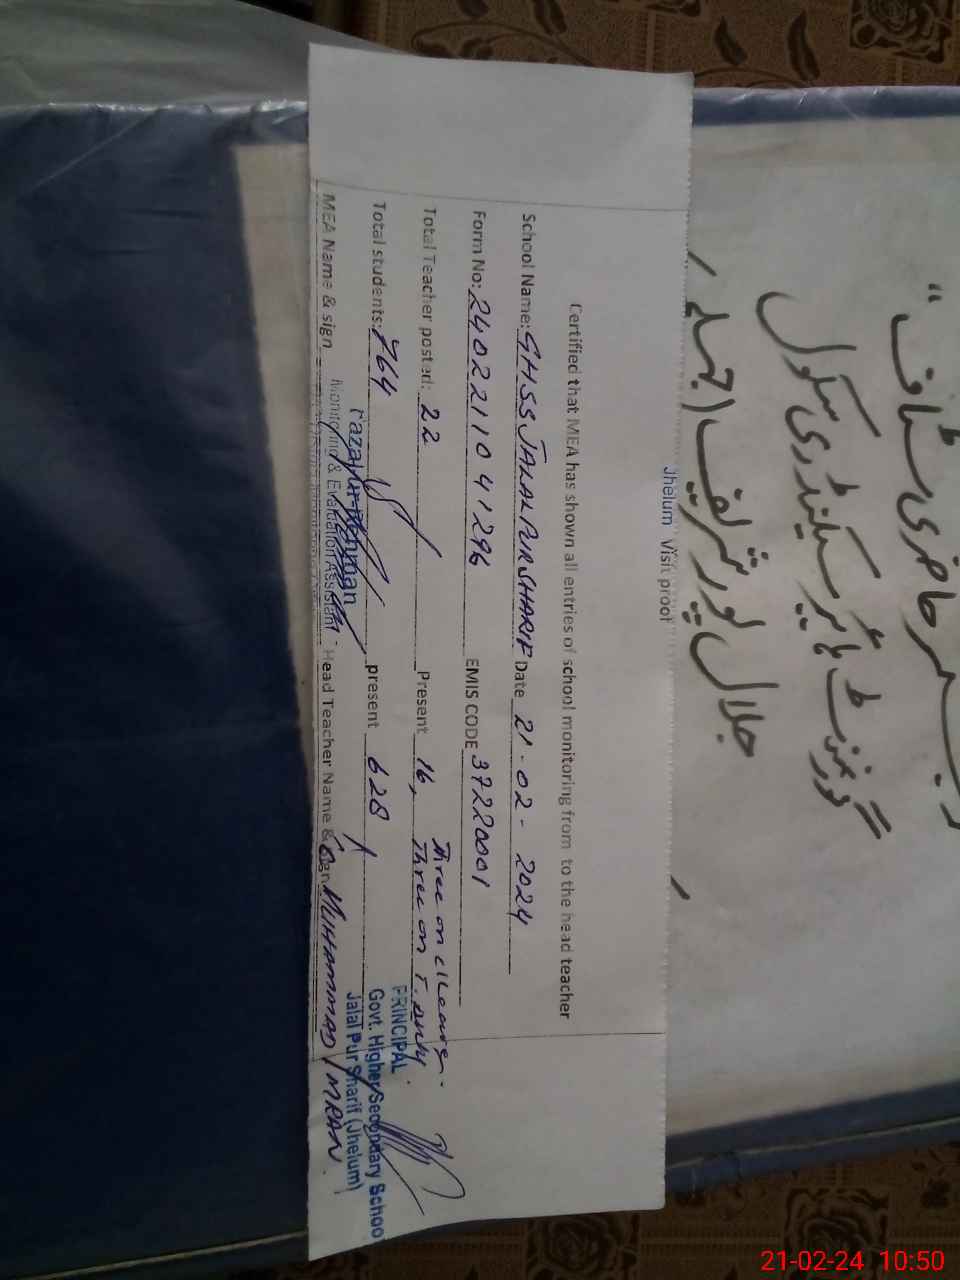 رجسٹر حاضری سٹاف"
گورنمنٹ ہائیر سیکنڈری سکول
جلال پور شریف (جہلم)
Jhelum Visit proof
Certified that MEA has shown all entries of school monitoring from to the head teacher
School Name: GHSS JALALPUR SHARIF Date 21-02-2024
Form No: 2402211041296 EMIS CODE 37220001
Total Teacher posted: 22 Present 16, Three on c/Leave.
Three on T. Duty.
Total students: 764 present 628
MEA Name & sign Head Teacher Name & sign MUHAMMAD IMRAN
Fazal-ur-Rehman
Monitoring & Evaluation Assistant
PRINCIPAL
Govt. Higher Secondary Schoo
Jalal Pur Sharif (Jhelum)
21-02-24 10:50